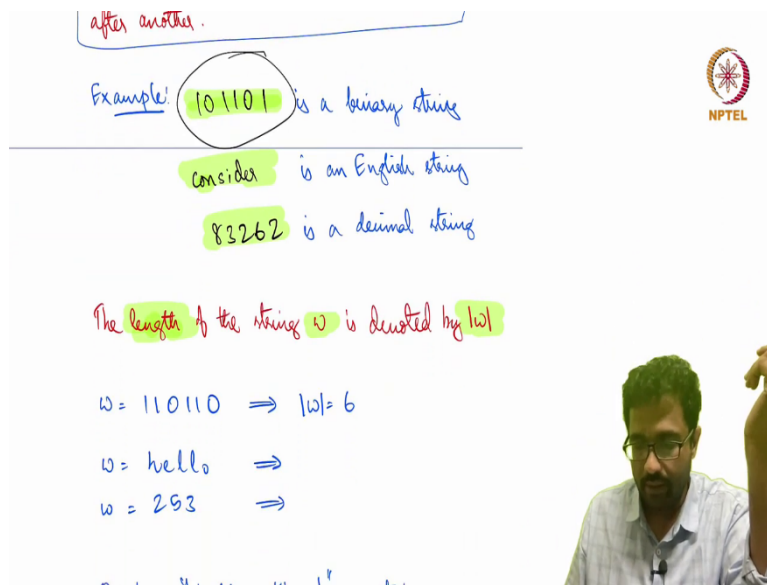 after another.
Example: 101101 is a binary string
NPTEL
consider is an English string
83262 is a decimal string
The length of the string w is denoted by |w|
w = 110110 ⟹ |w| = 6
w = hello ⟹
w = 253 ⟹